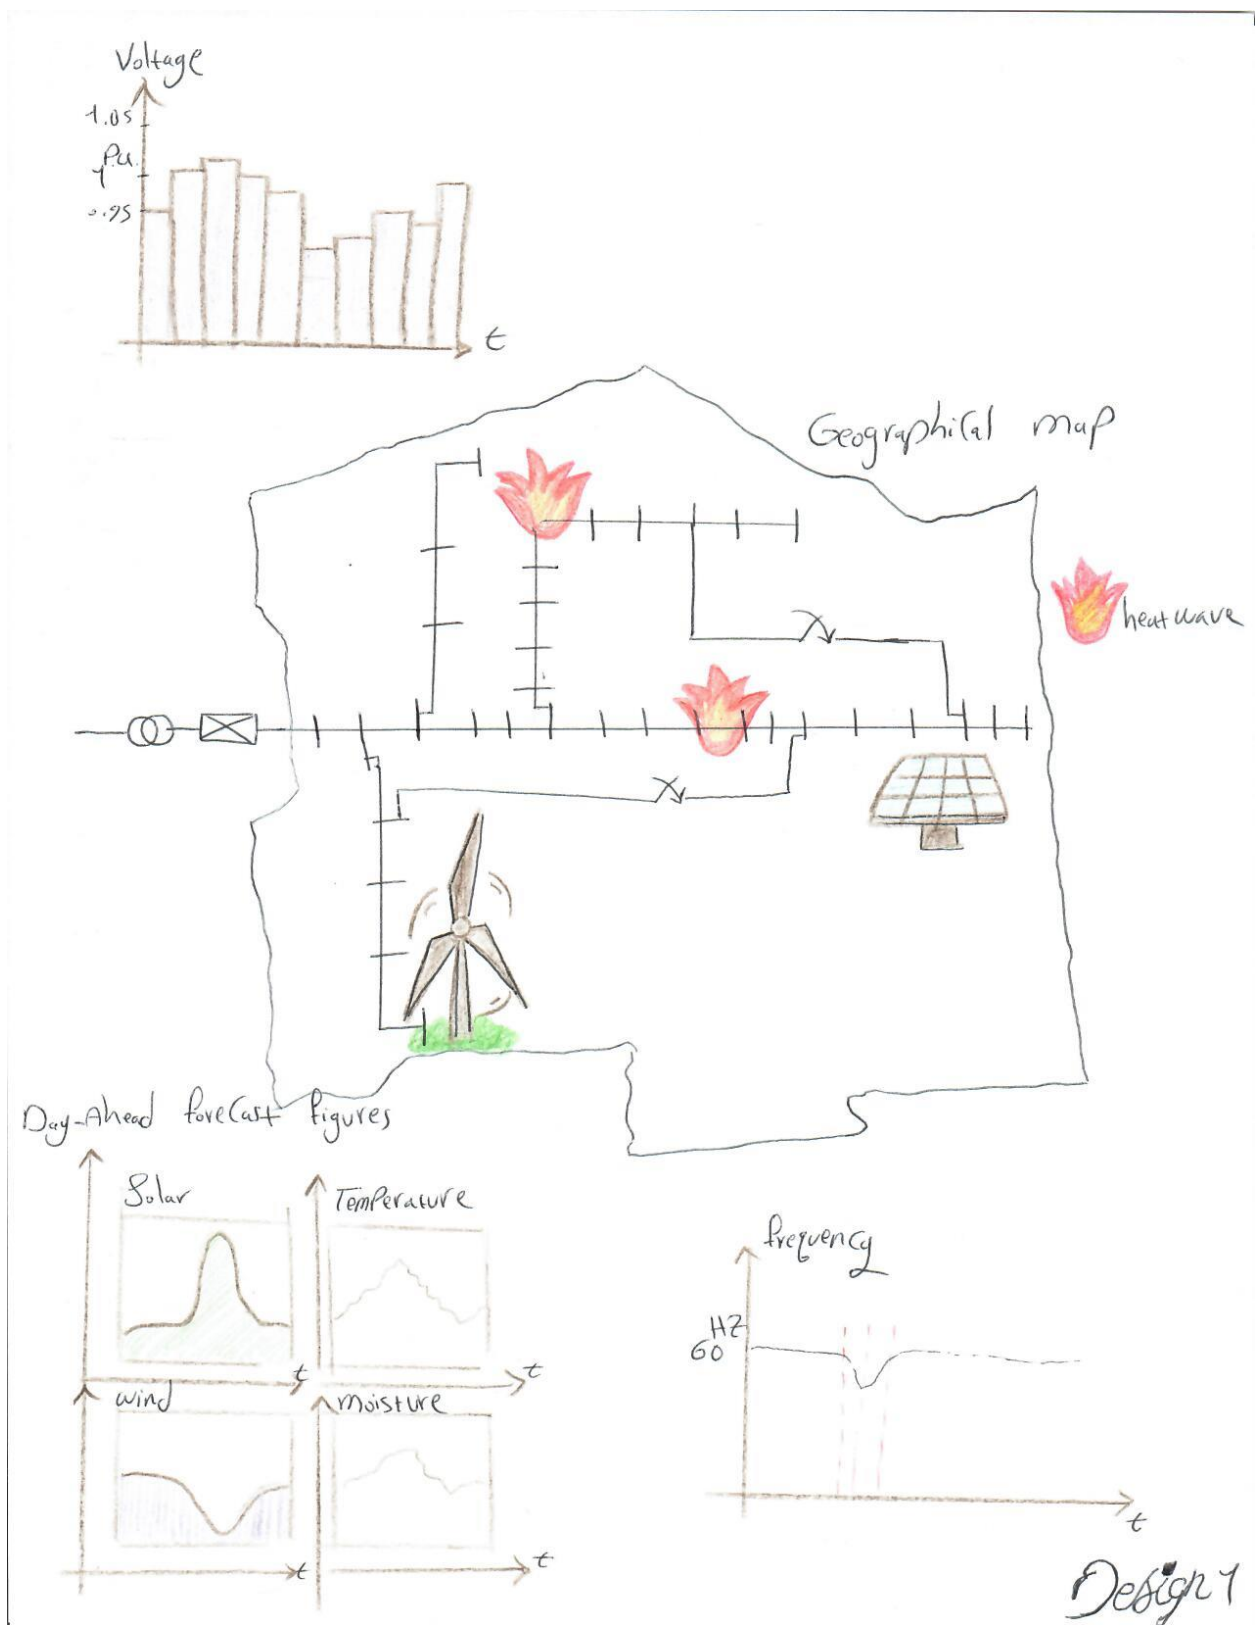 Voltage
1.05
P.u.
1
0.95
t
Geographical map
heatwave
Day-Ahead forecast figures
Solar
t
Temperature
t
wind
t
moisture
t
frequency
HZ
60
t
Design 1